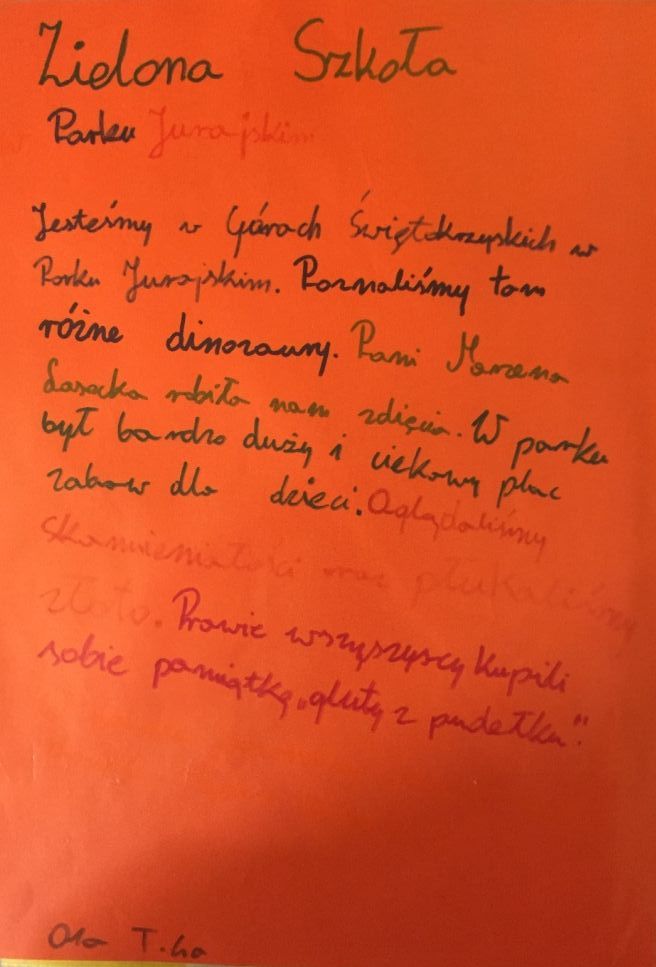 Zielona Szkoła
w Parku Jurajskim
Jesteśmy w Górach Świętokrzyskich w
Parku Jurajskim. Poznaliśmy tam
różne dinozaury. Pani Marzena
Lasocka robiła nam zdięcia. W parku
był bardzo duży i ciekawy plac
zabaw dla dzieci. Oglądaliśmy
skamieniałości oraz płukaliśmy
złoto. Prawie wszyszyscy kupili
sobie pamiątkę „gluty z pudełka".
Ola T.